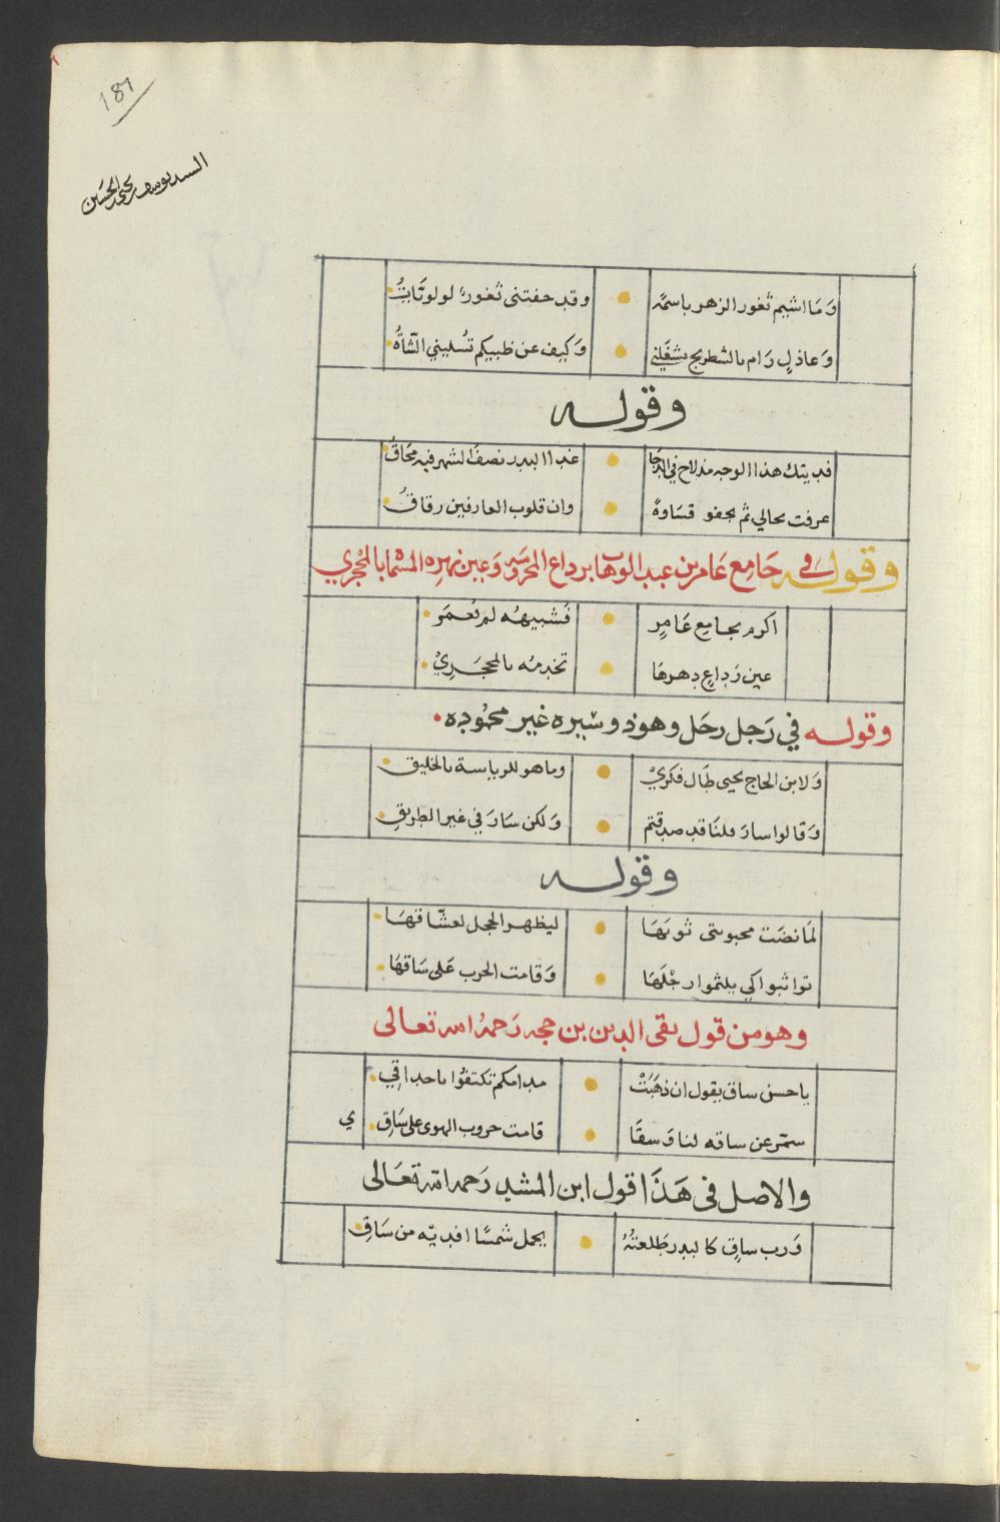 187
السيد يوسف بن يحيى الحسين
وَمَا اشيم ثغور الزهر باسمَه وقد حفتنى ثغورٌ لولوتَّاتُ
وَعاذلٍ رَام بالشطرنج يشغَلني وَكيف عن ظبيكم تسليني الشاتُ
وقوله
فديتك هذا الوجه مذ لاح في الدجا غدا البدر نصف الشهر فيه محَاقُ
عرفت بحالي ثم يجفو قسَاوة وان قلوب العارفين رقاقُ
وقوله في جَامِع عَامر بن عبد الوهاب برداع المحروسَه وَعين نهره المسَمَّا بالمحجري
اكرم بجامع عَامِرٍ فشبيهُه لم يُعمَرِ
عين رَدِاعٍ دهرهَا تخدمُه بالمحجَرِيْ
وقوله في رَجل رحَل وهو ذو سيره غير محمُوده
وَلابن الحاج يحيى طَال فكرَيْ وماهو للرياسة بالخليق
وَقالوا سارَ قلنَا قد صدقتم وَلكن سَارَ في غير الطريقِ
وقوله
لمَا نضَت محبوبتى ثوبَهَا ليظهر الحجل لعشَّاقهَا
تواثبوا كي يلثموا رجْلَهَا وَقامت الحرب عَلى سَاقهَا
وهو من قول تقى الدين بن حجه رَحمهُ الله تعالى
ياحسن ساق يقول ان ذهَبَتْ مدامكم تكتفوا باحداقِي
شمّر عن ساقه لنا وَسقَا قامت حروب الهوى على سَاق ي
والاصل فى هَذَا قول ابن المشد رَحمه الله تعَالى
وَرب ساقٍ كالبدر طَلعتهُ يحمل شمسًا افديّه من سَاقِ